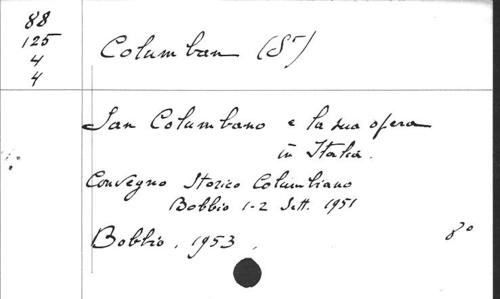 88
125
4
4
Columban (St)
San Columbano e la sua opera
in Italia.
Convegno Storico Columbiano
Bobbio 1-2 Sett. 1951
Bobbio, 1953.
8°